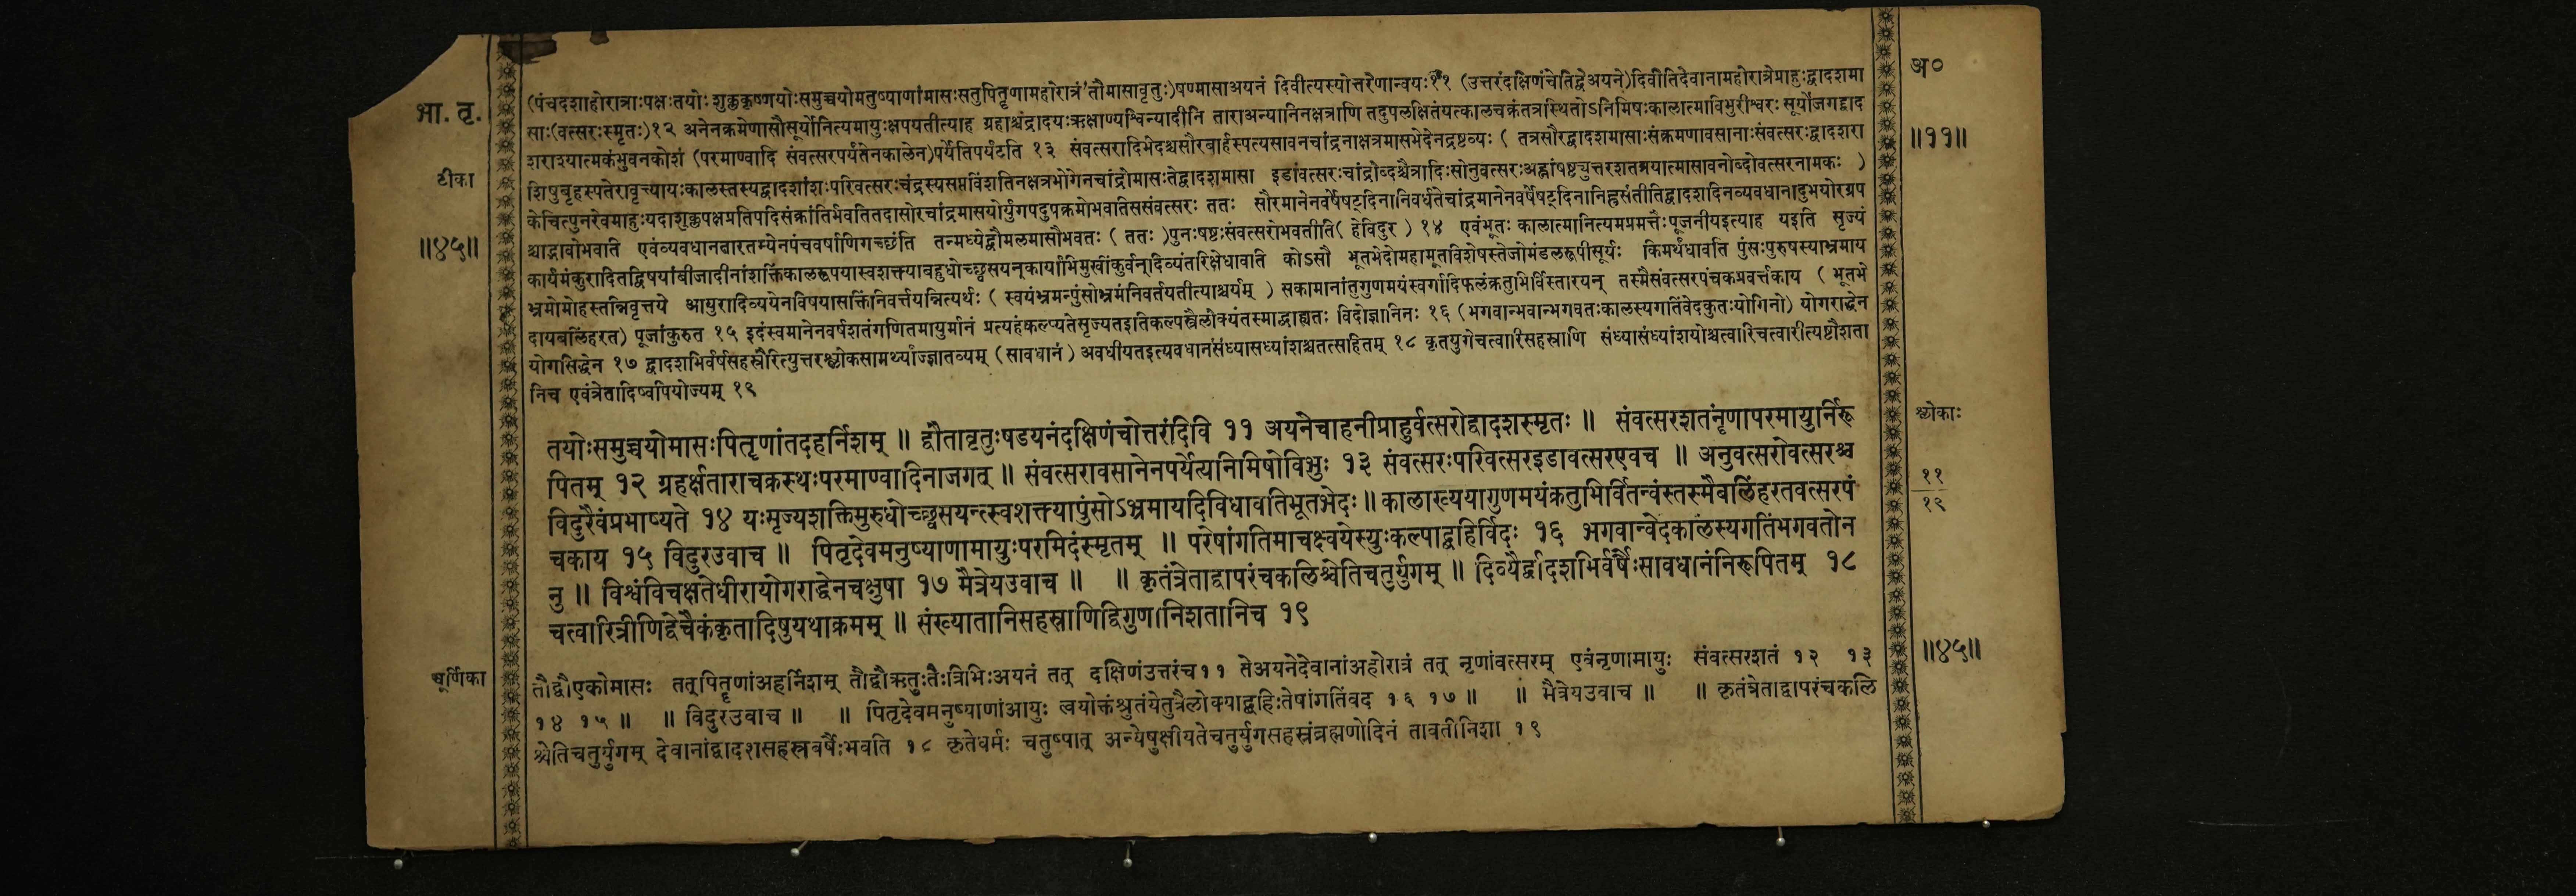 भा. तृ.
टीका
॥४५॥
चूर्णिका
अ०
॥११॥
श्लोकाः
११
१९
॥४५॥
(पंचदशाहोरात्राःपक्षःतयोःशुक्लकृष्णयोःसमुच्चयोमनुष्याणांमासःसतुपितॄणामहोरात्रं तौमासावृतुः)षण्मासाअयनं दिवीत्यस्योत्तरेणान्वयः११ (उत्तरंदक्षिणंचेतिद्वेअयने)दिवीतिदेवानामहोरात्रेप्राहुःद्वादशमा
साः(वत्सरःस्मृतः)१२ अनेनक्रमेणासौसूर्योनित्यमायुःक्षपयतीत्याह ग्रहाश्चंद्रादयःऋक्षाण्यश्विन्यादीनि ताराअन्यानिनक्षत्राणि तदुपलक्षितंयत्कालचक्रंतत्रस्थितोऽनिमिषःकालात्माविभुरीश्वरः सूर्योजगद्द्वाद
शराश्यात्मकंभुवनकोशं (परमाण्वादि संवत्सरपर्यंतेनकालेन)पर्येतिपर्यटति १३ संवत्सरादिभेदश्चसौरबार्हस्पत्यसावनचांद्रनाक्षत्रमासभेदेनद्रष्टव्यः ( तत्रसौरद्वादशमासाःसंक्रमणावसानाःसंवत्सरःद्वादशरा
शिषुबृहस्पतेरावृत्त्यायःकालस्तस्यद्वादशांशःपरिवत्सरःचंद्रस्यसप्तविंशतिनक्षत्रभोगेनचांद्रोमासःतेद्वादशमासा इडांवत्सरःचांद्रोब्दश्चैत्रादिःसोनुवत्सरःअह्नांषष्ट्युत्तरशतत्रयात्मासावनोब्दोवत्सरनामकः )
केचित्पुनरेवमाहुःयदाशुक्लपक्षप्रतिपदिसंक्रांतिर्भवतितदासौरचांद्रमासयोर्युगपदुपक्रमोभवतिससंवत्सरः ततः सौरमानेनवर्षेषट्दिनानिवर्धतेचांद्रमानेनवर्षेषट्दिनानिह्रसंतीतिद्वादशदिनव्यवधानादुभयोरग्रप
श्चाद्भावोभवति एवंव्यवधानतारतम्येनपंचवर्षाणिगच्छंति तन्मध्येद्वौमलमासौभवतः ( ततः )पुनःषष्टःसंवत्सरोभवतीति( हेविदुर ) १४ एवंभूतः कालात्मानित्यमप्रमत्तैःपूजनीयइत्याह यइति सृज्यं
कार्यमंकुरादितद्विषयांबीजादीनांशक्तिंकालरूपयास्वशक्त्याबहुधोच्छ्वसयन्कार्याभिमुखींकुर्वन्दिव्यंतरिक्षेधावति कोऽसौ भूतभेदोमहाभूतविशेषस्तेजोमंडलरूपीसूर्यः किमर्थंधावति पुंसःपुरुषस्याभ्रमाय
भ्रमोमोहस्तन्निवृत्तये आयुरादिव्ययेनविषयासक्तिंनिवर्त्तयन्नित्यर्थः ( स्वयंभ्रमन्पुंसोभ्रमंनिवर्तयतीत्याश्चर्यम् ) सकामानांतुगुणमयंस्वर्गादिफलंक्रतुभिर्विस्तारयन् तस्मैसंवत्सरपंचकप्रवर्त्तकाय ( भूतभे
दायबलिंहरत) पूजांकुरुत १५ इदंस्वमानेनवर्षशतंगणितमायुर्मानं प्रत्यहंकल्प्यतेसृज्यतइतिकल्पस्त्रैलोक्यंतस्माद्बाह्यतः विदोज्ञानिनः १६ (भगवान्भवान्भगवतःकालस्यगतिंवेदकुतःयोगिनो) योगराद्धेन
योगसिद्धेन १७ द्वादशभिर्वर्षसहस्रैरित्युत्तरश्लोकसामर्थ्याज्ज्ञातव्यम् (सावधानं) अवधीयतइत्यवधानंसंध्यासंध्यांशश्चतत्सहितम् १८ कृतयुगेचत्वारिसहस्राणि संध्यासंध्यांशयोश्चत्वारिचत्वारीत्यष्टौशता
निच एवंत्रेतादिष्वपियोज्यम् १९
तयोःसमुच्चयोमासःपितॄणांतदहर्निशम् ॥ द्वौतावृतुःषडयनंदक्षिणंचोत्तरंदिवि ११ अयनेचाहनीप्राहुर्वत्सरोद्वादशस्मृतः ॥ संवत्सरशतंनॄणांपरमायुर्निरू
पितम् १२ ग्रहर्क्षताराचक्रस्थःपरमाण्वादिनाजगत् ॥ संवत्सरावसानेनपर्येत्यनिमिषोविभुः १३ संवत्सरःपरिवत्सरइडावत्सरएवच ॥ अनुवत्सरोवत्सरश्च
विदुरैवंप्रभाष्यते १४ यःसृज्यशक्तिमुरुधोच्छ्वसयन्स्वशक्त्यापुंसोऽभ्रमायदिविधावतिभूतभेदः॥ कालाख्ययागुणमयंक्रतुभिर्वितन्वंस्तस्मैबलिंहरतवत्सरपं
चकाय १५ विदुरउवाच ॥ पितृदेवमनुष्याणामायुःपरमिदंस्मृतम् ॥ परेषांगतिमाचक्ष्वयेस्युःकल्पाद्बहिर्विदः १६ भगवान्वेदकालस्यगतिंभगवतोन
नु ॥ विश्वंविचक्षतेधीरायोगराद्धेनचक्षुषा १७ मैत्रेयउवाच ॥ ॥ कृतंत्रेताद्वापरंचकलिश्चेतिचतुर्युगम् ॥ दिव्यैर्द्वादशभिर्वर्षैःसावधानंनिरूपितम् १८
चत्वारित्रीणिद्वेचैकंकृतादिषुयथाक्रमम् ॥ संख्यातानिसहस्राणिद्विगुणानिशतानिच १९
तौद्वौएकोमासः तत्पितॄणांअहर्निशम् तौद्वौऋतुःतैःत्रिभिःअयनं तत् दक्षिणंउत्तरंच११ तेअयनेदेवानांअहोरात्रं तत् नृणांवत्सरम् एवंनृणामायुः संवत्सरशतं १२ १३
१४ १५ ॥ ॥ विदुरउवाच ॥ ॥ पितृदेवमनुष्याणांआयुः त्वयोक्तंश्रुतंयेतुत्रैलोक्याद्बहिःतेषांगतिंवद १६ १७ ॥ ॥ मैत्रेयउवाच ॥ ॥ कृतंत्रेताद्वापरंचकलि
श्चेतिचतुर्युगम् देवानांद्वादशसहस्रवर्षैःभवति १८ कृतेधर्मः चतुष्पात् अन्येषुक्षीयतेचतुर्युगसहस्रंब्रह्मणोदिनं तावतीनिशा १९